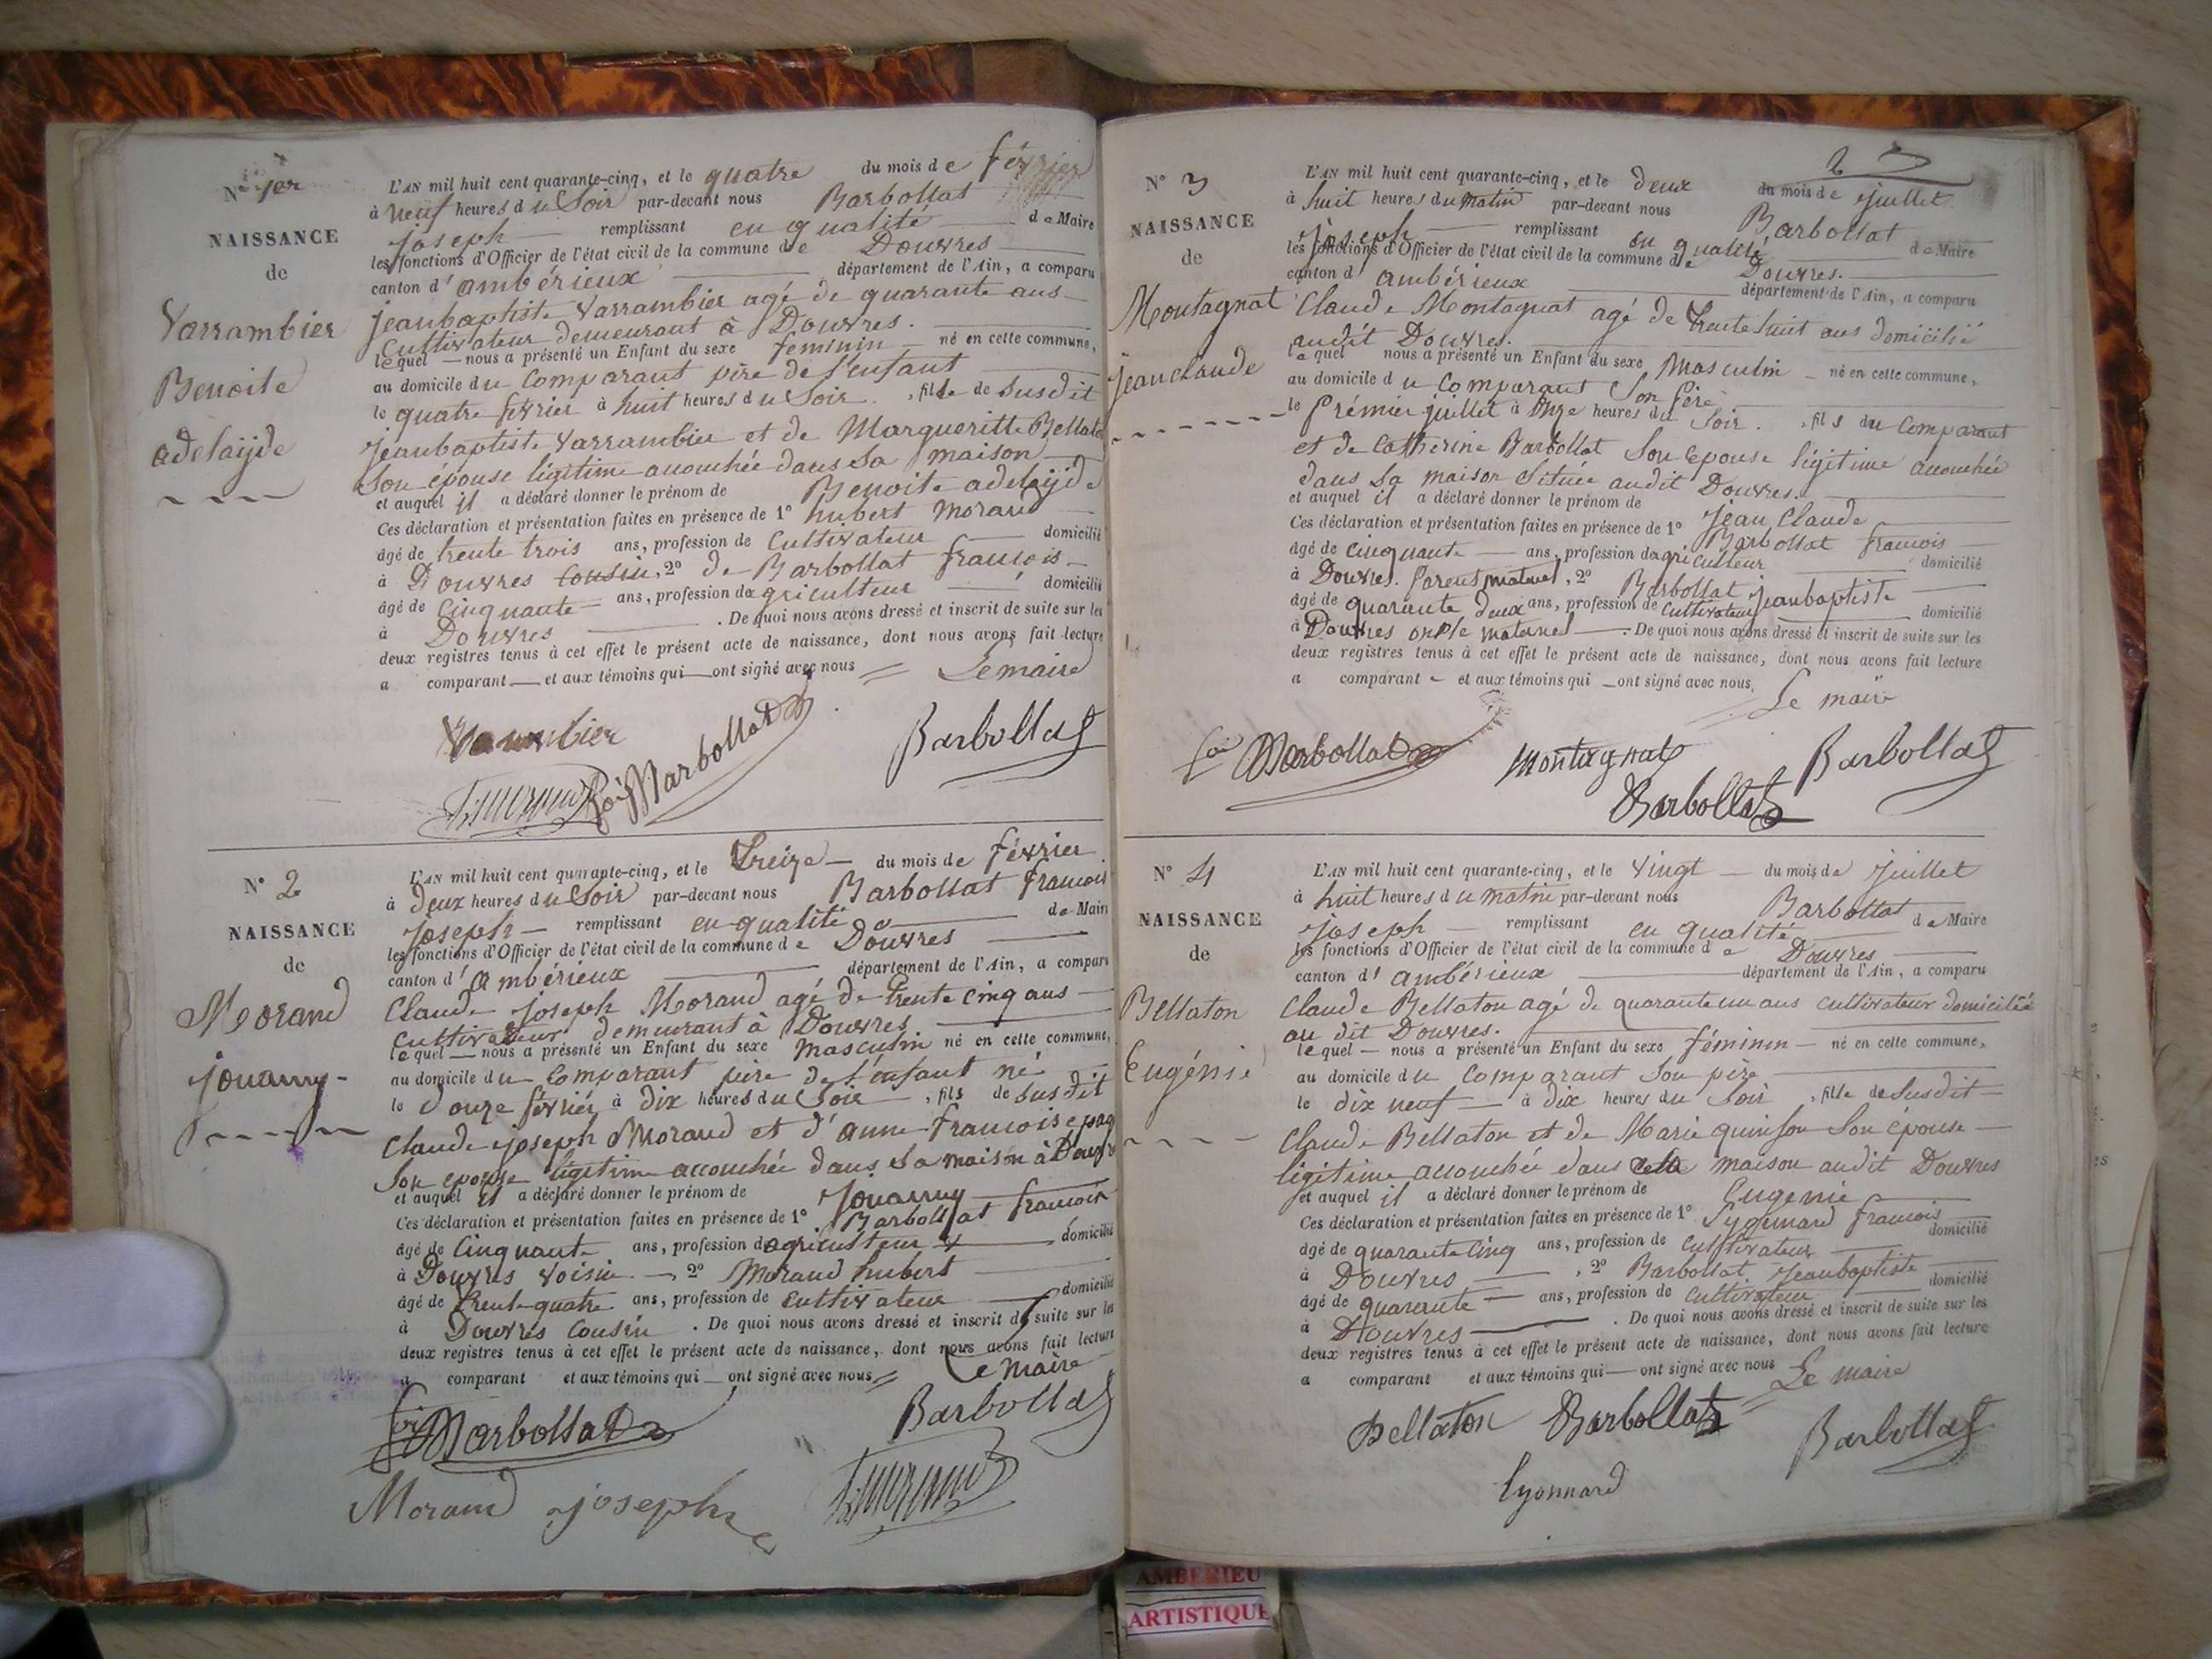 N° 1er
NAISSANCE
de
Varrambier
Benoite
adelaijde
L'AN mil huit cent quarante-cinq, et le quatre du mois de février
à neuf heures du Soir par-devant nous Barbollat
joseph remplissant en qualité de Maire
les fonctions d'Officier de l'état civil de la commune de Douvres
canton d'ambérieux département de l'Ain, a comparu
jeanbaptiste Varrambier agé de quarante ans
Cultivateur demeurant à Douvres.
lequel nous a présenté un Enfant du sexe feminin né en cette commune,
au domicile du Comparant père de l'enfant
le quatre février à huit heures du Soir, fille de susdit
jeanbaptiste Varrambier et de Margueritte
Son épouse légitime accouchée dans sa maison
et auquel il a déclaré donner le prénom de Benoite adelaijde
Ces déclaration et présentation faites en présence de 1° hubert Morand
âgé de trente trois ans, profession de Cultivateur domicilié
à Douvres cousin, 2° de Barbollat francois
âgé de Cinquante ans, profession dagriculteur domicilié
à Douvres. De quoi nous avons dressé et inscrit de suite sur les
deux registres tenus à cet effet le présent acte de naissance, dont nous avons fait lecture
a comparant et aux témoins qui ont signé avec nous Lemaire
Varrambier
foi Barbollat
Barbollat
N° 2
NAISSANCE
de
Morand
jouanny
L'AN mil huit cent quarante-cinq, et le Treize du mois de février
à deux heures du Soir par-devant nous Barbollat francois
joseph remplissant en qualité de Maire
les fonctions d'Officier de l'état civil de la commune de Douvres
canton d'ambérieux département de l'Ain, a comparu
Claude joseph Morand agé de trente cinq ans
Cultivateur demeurant à Douvres
lequel nous a présenté un Enfant du sexe masculin né en cette commune,
au domicile du Comparant père de l'enfant né
le douze février à dix heures du Soir, fils de susdit
Claude joseph Morand et d'anne francoise
Son epouse légitime accouchée dans sa maison à
et auquel il a déclaré donner le prénom de jouanny
Ces déclaration et présentation faites en présence de 1° Barbollat francois
âgé de Cinquante ans, profession dagriculteur domicilié
à Douvres voisin, 2° Morand hubert
âgé de trente-quatre ans, profession de cultivateur domicilié
à Douvres Cousin. De quoi nous avons dressé et inscrit de suite sur les
deux registres tenus à cet effet le présent acte de naissance, dont nous avons fait lecture
a comparant et aux témoins qui ont signé avec nous Le maire
foi Barbollat
Barbollat
Morand joseph
2
N° 3
NAISSANCE
de
Montagnat
jean claude
L'AN mil huit cent quarante-cinq, et le deux du mois de juillet
à huit heures du matin par-devant nous Barbollat
joseph remplissant en qualité de Maire
les fonctions d'Officier de l'état civil de la commune de Douvres.
canton d'ambérieux département de l'Ain, a comparu
Claude Montagnat agé de trente huit ans domicilié
audit Douvres.
lequel nous a présenté un Enfant du sexe Masculin né en cette commune,
au domicile du Comparant Son père
le prémier juillet à Onze heures du Soir, fils du Comparant
et de Catherine Barbollat Son epouse légitime accouchée
dans Sa maison Située audit Douvres.
et auquel il a déclaré donner le prénom de jean Claude
Ces déclaration et présentation faites en présence de 1° Barbollat francois
âgé de cinquante ans, profession dagriculteur domicilié
à Douvres. parent maternel, 2° Barbollat jeanbaptiste
âgé de quarante deux ans, profession de cultivateur domicilié
à Douvres oncle maternel. De quoi nous avons dressé et inscrit de suite sur les
deux registres tenus à cet effet le présent acte de naissance, dont nous avons fait lecture
a comparant et aux témoins qui ont signé avec nous. Le maire
foi Barbollat
montagnat
Barbollat
Barbollat
N° 4
NAISSANCE
de
Bellaton
Eugénie
L'AN mil huit cent quarante-cinq, et le vingt du mois de juillet
à huit heures du matin par-devant nous Barbollat
joseph remplissant en qualité de Maire
les fonctions d'Officier de l'état civil de la commune de Douvres
canton d'ambérieux département de l'Ain, a comparu
Claude Bellaton agé de quarante un ans cultivateur domicilié
au dit Douvres.
lequel nous a présenté un Enfant du sexe féminin né en cette commune,
au domicile du Comparant Son père
le dix neuf à dix heures du Soir, fille de susdit
Claude Bellaton et de Marie quinson Son épouse
légitime accouchée dans cette maison audit Douvres
et auquel il a déclaré donner le prénom de Eugenie
Ces déclaration et présentation faites en présence de 1° francois
âgé de quarante cinq ans, profession de cultivateur domicilié
à Douvres, 2° Barbollat jeanbaptiste
âgé de quarante ans, profession de cultivateur domicilié
à Douvres. De quoi nous avons dressé et inscrit de suite sur les
deux registres tenus à cet effet le présent acte de naissance, dont nous avons fait lecture
a comparant et aux témoins qui ont signé avec nous Le maire
Bellaton
Barbollat
Barbollat
Lyonnard
AMBERIEU
ARTISTIQUE